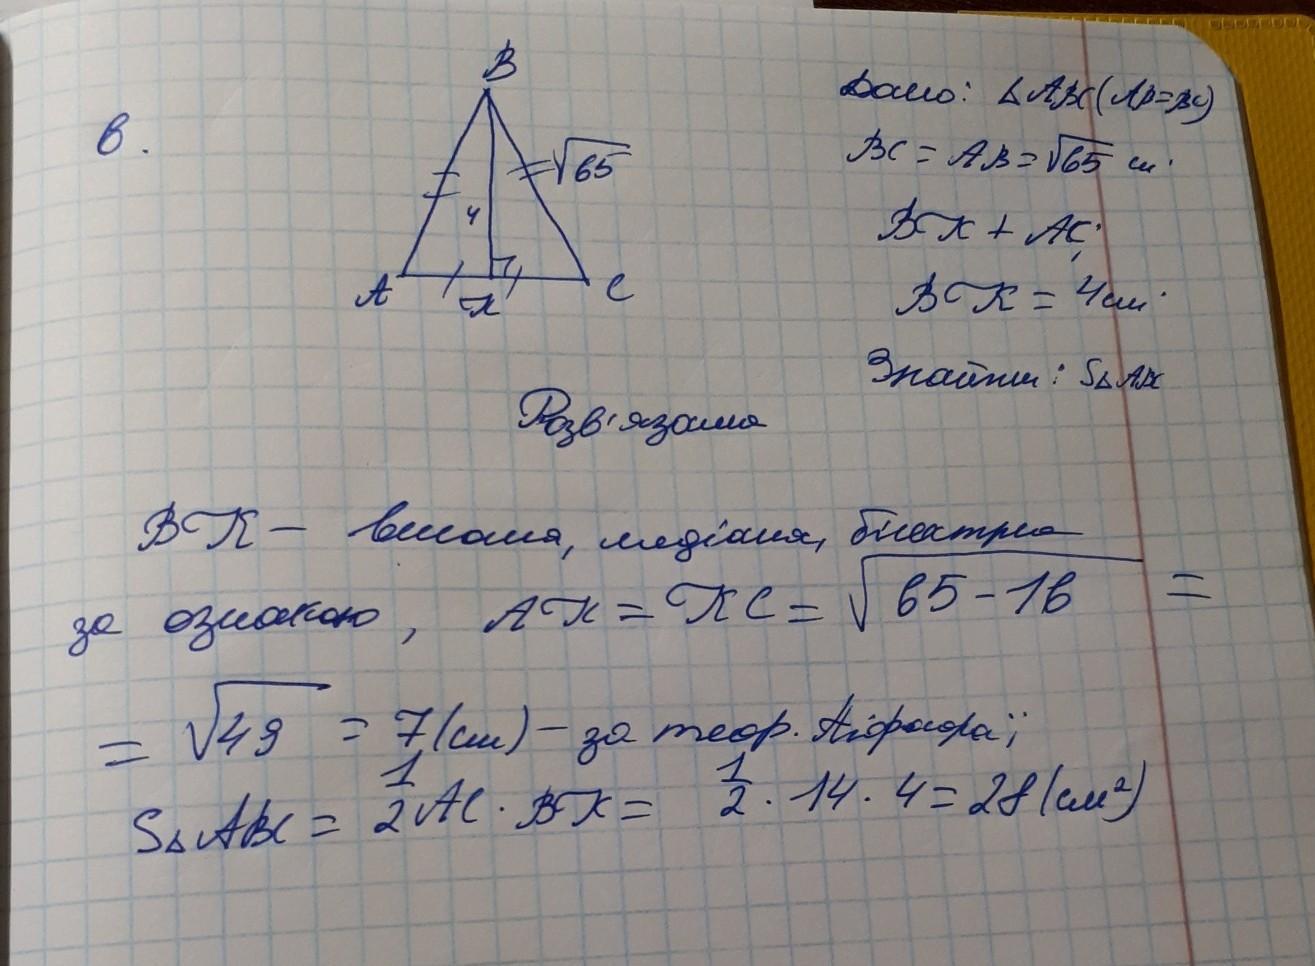 6.
B
√65
4
A
K
C
Дано: △ABC (AB=BC)
BC = AB = √65 см.
BK ⊥ AC;
BK = 4 см.
Знайти: S△ABC
Розв'язання
BK – висота, медіана, бісектриса
за ознакою, AK = KC = √65-16 =
= √49 = 7 (см) – за теор. Піфагора;
S△ABC = 1/2 AC · BK = 1/2 · 14 · 4 = 28 (см²)